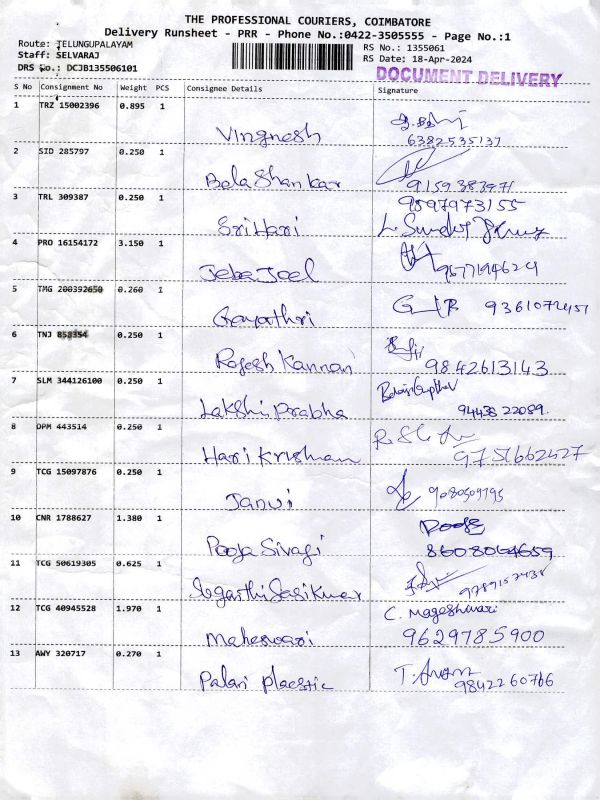 THE PROFESSIONAL COURIERS, COIMBATORE
Delivery Runsheet - PRR - Phone No.:0422-3505555 - Page No.:1
Route: TELUNGUPALAYAM
RS No.: 1355061
Staff: SELVARAJ
RS Date: 18-Apr-2024
DRS No.: DCJB135506101
DOCUMENT DELIVERY
S No Consignment No Weight PCS Consignee Details Signature
1 TRZ 15002396 0.895 1
Vingnesh
6382535137
2 SID 285797 0.250 1
Bala Shankar 9159383971
3 TRL 309387 0.250 1 9897973155
Sri Hari
4 PRO 16154172 3.150 1
Jeba Joel
5 TMG 200392650 0.260 1
Gayathri
6 TNJ 858354 0.250 1
Rajesh Kannan 9842613143
7 SLM 344126100 0.250 1
Lakshi Prabha 94438 22089.
8 DPM 443514 0.250 1
Hari Krishnan
9 TCG 15097876 0.250 1
Janvi
10 CNR 1788627 1.380 1
Pooja Sivagi 8608064659
11 TCG 50619305 0.625 1
12 TCG 40945528 1.970 1 C. Mageshwari
Maheswari 9629785900
13 AWY 320717 0.270 1
Palani Plaestic 9842260766